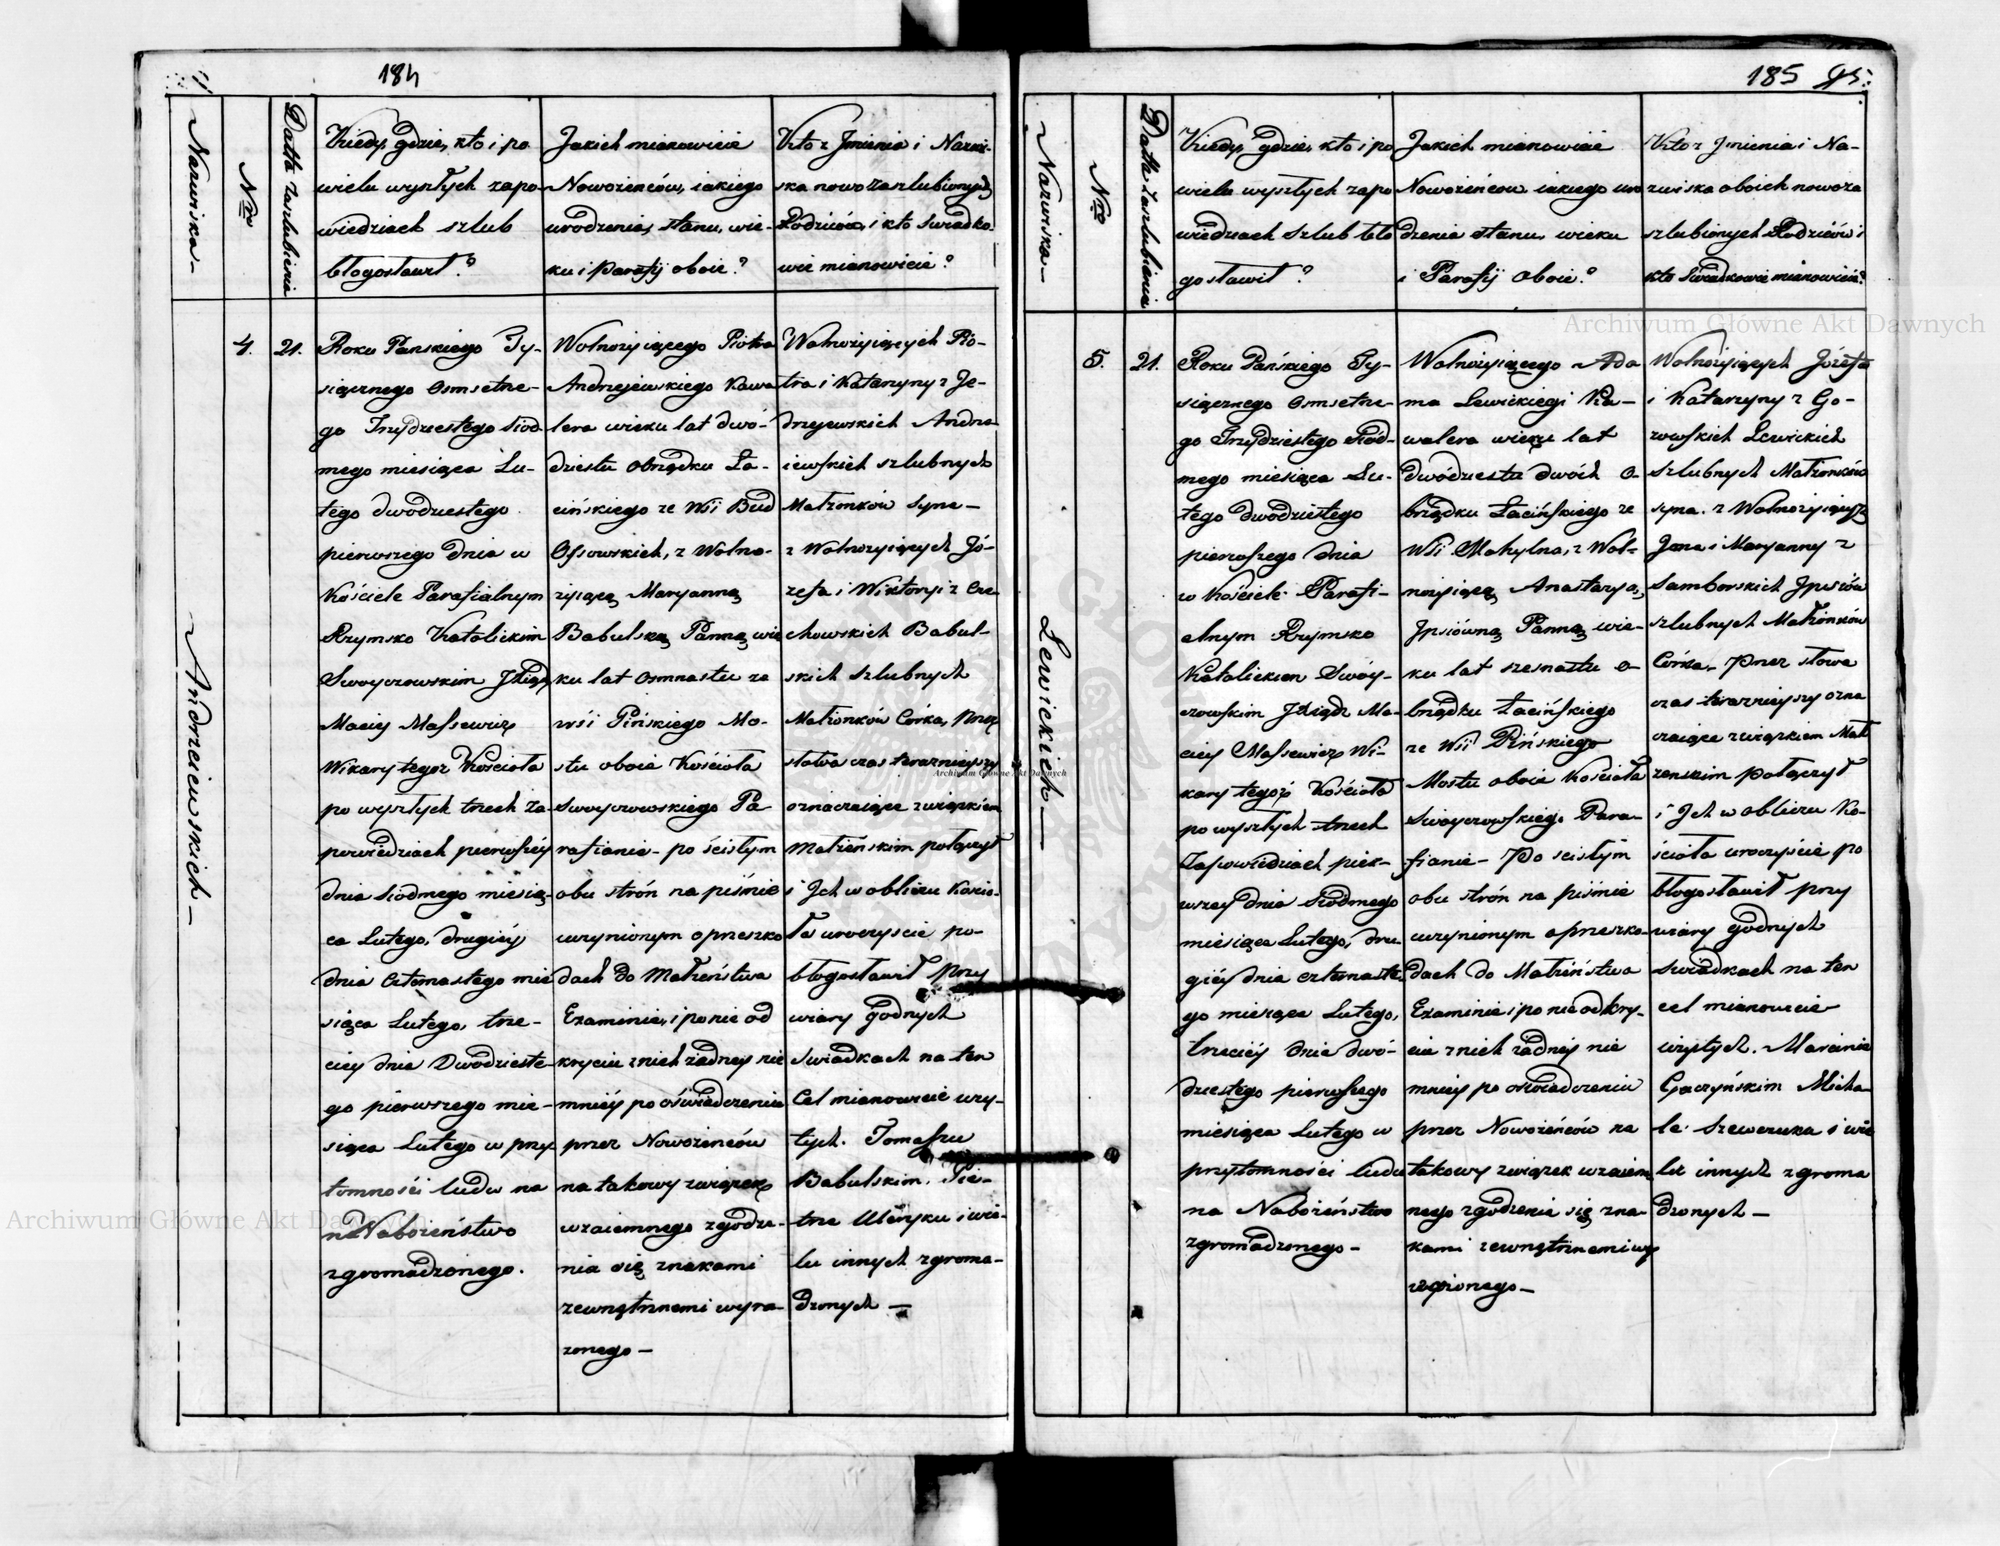 184
Nazwiska -
Nro
Datta Zaszlubienia
Kiedy, gdzie, kto i po
wielu wyszłych zapo-
wiedziach szlub
błogosławił?
Jakich mianowicie
Nowożeńców, iakiego
urodzenia, stanu, wie-
ku i Parafij oboie?
Kto z Jmienia i Nazwi-
ska nowozaszlubionych
Rodziców, i kto Swiadko-
wie mianowicie?
Andrzeiewskich -
4.
21.
Roku Panskiego Ty-
siącznego Osmsetne-
go Trzydziestego Siod-
mego miesiąca Lu-
tego dwodziestego
pierwszego dnia w
Kościele Parafialnym
Rzymsko Katolickim
Swoyczowskim Xiądz
Maciey Malsewicz
Wikary tegoż Kościoła
po wyszłych trzech Za-
powiedziach pierwszéy
dnia Siodmego miesią-
ca Lutego, drugiéy
dnia Czternastego mie
siąca Lutego, trze-
ciey dnia Dwodzieste
go pierwszego mie-
siąca Lutego w przy
tomności ludu na
na Nabożeństwo
zgromadzonego.
Wolnożyiącego Piotra
Andrzejewskiego Kawa
lera wieku lat dwó-
dziestu Obrządku Ła-
cińskiego ze Wsi Bud
Ossowskich, z Wolno-
żyiącą Maryanną
Babulską Panną wie
ku lat Osmnastu ze
wsi Pińskiego Mo-
stu oboie Kościoła
Swoyczowskiego Pa-
rafianie - po ścisłym
obu strón na piśmie
uczynionym o przeszko
dach do Małżeństwa
Examinie, i po nie od
kryciu z nich żadney nie
mniéy po oświadczeniu
przez Nowożeńców
na takowy związek
wzaiemnego zgodze-
nia się znakami
zewnętrznemi wyra-
żonego -
Wolnożyiących Pio-
tra i Katarzyny z Je-
drzejewskich Andrze
iewskich szlubnych
Małżonków Syna -
z Wolnożyiących Jó-
zefa i Wiktoryi z Cze
chowskich Babul-
skich szlubnych
Małżonków Córka, Przez
słowa czas teraznieyszy
oznaczaiące związkiem
Małżeńskim połączył
i Jch w obliczu Kościo-
ła uroczyście po-
błogosławił przy
wiary godnych
Swiadkach na ten
Cel mianowicie wzy-
tych. Tomaszu
Babulskim, Pie-
trze Uleryku i wie-
lu innych zgroma-
dzonych -
185 95.
Nazwiska -
Nro
Datta Zaszlubienia
Kiedy, gdzie, kto i po
wielu wyszłych zapo
wiedziach Szlub bło
gosławił?
Jakich mianowicie
Nowożeńcow iakiego uro
dzenia stanu, wieku
i Parafij oboie?
Kto z Jmienia i Na-
zwiska oboich nowoza
szlubionych Rodziców i
kto Swiadkowie mianowicie?
Lewickich -
5.
21.
Roku Pańskiego Ty-
siącznego Osmsetne-
go Trzydziestego Siód-
mego miesiąca Lu-
tego dwodziestego
pierwszego dnia
w Kościele Parafi-
alnym Rzymsko
Katolickiem Swóy-
czowskim Xiądz Ma-
ciey Malsewicz Wi-
kary tegoż Kościoła
po wyszłych trzech
Zapowiedziach pier-
wszey dnia Siodmego
miesiąca Lutego, dru-
giéy dnia czternaste-
go miesiąca Lutego,
trzeciéy dnia dwó-
dziestego pierwszego
miesiąca Lutego w
przytomności ludu
na Nabożeństwo
zgromadzonego -
Wolnożyiącego Ada
ma Lewickiego Ka-
walera wieku lat
dwódziestu dwóch o-
brządku Łacińskiego ze
Wsi Mohylna, z Wol-
nożyiącą Anastazyą,
Jpsiówną Panną wie-
ku lat szesnastu o-
brządku Łacińskiego
ze Wsi Pińskiego
Mostu oboie Kościoła
Swoyczowskiego Para-
fianie - Po ścisłym
obu strón na piśmie
uczynionym o przeszko-
dach do Małżeństwa
Examinie i po nie odkry-
ciu z nich żadnéy nie
mniéy po oświadczeniu
przez Nowożeńców na
takowy związek wzaiem
nego zgodzenia się zna-
kami zewnętrznemi wy
rażonego -
Wolnożyiących Józefa
i Katarzyny z Go-
rowskich Lewickich
Szlubnych Małżonków
syna. z Wolnożyiących
Jana i Maryanny z
Samborskich Jpsów
szlubnych Małżonków
Córka, Przez słowa
czas teraznieyszy ozna
czaiące związkiem Mał
żenskim połączył
i Jch w obliczu Ko-
ścioła uroczyście po
błogosławił przy
wiary godnych
Swiadkach na ten
cel mianowicie
wzytych. Marcinie
Gaczyńskim Micha-
le Szewczuka i wie
lu innych zgroma
dzonych -